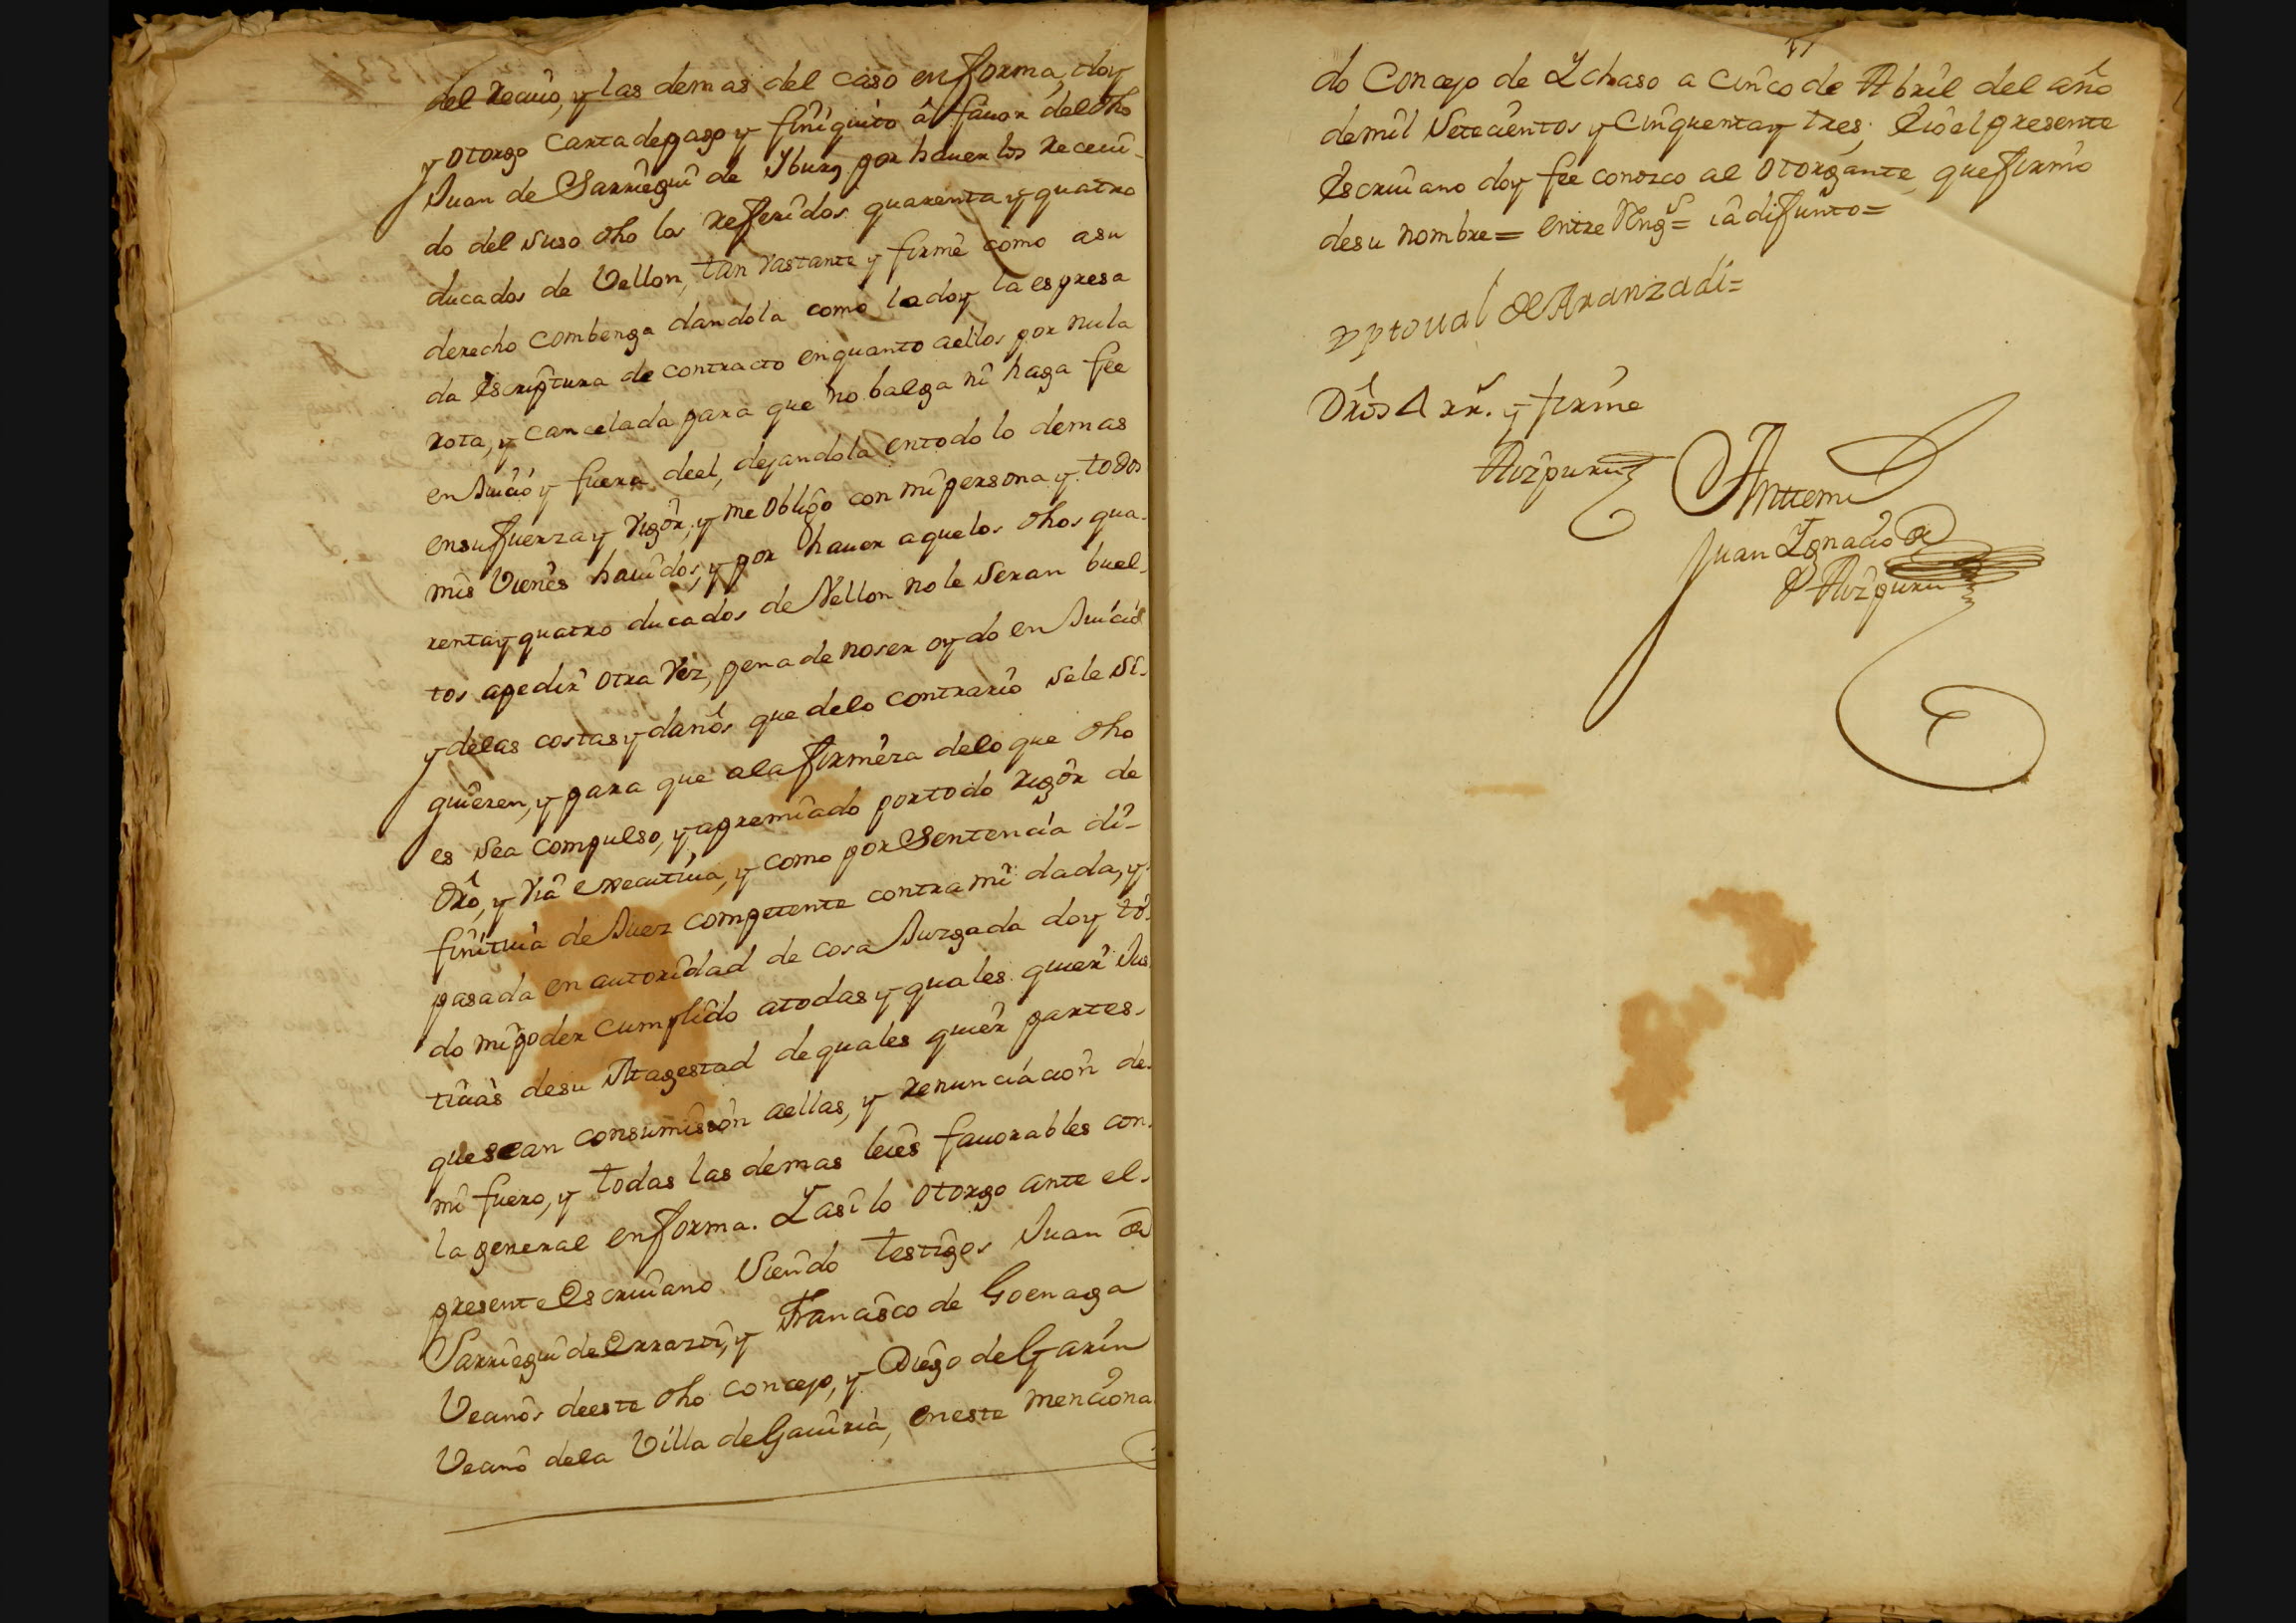 del Reciuo, y las demas del caso en forma, doy
y otorgo carta de pago y finiquito â fauor del dho
Juan de Sarriegui de Yburg por hauer los Receui-
do del suso dho los referidos quarenta y quatro
ducados de Vellon, tan vastante y firme como a su
derecho combenga dandola como la doy la espresa
da escriptura de contracto en quanto a ellos por nula
rota, y cancelada para que no balga ni haga fee
en Juicio y fuera de el, dejandola en todo lo demas
en su fuerza y vigor, y me obligo con mi persona y todos
mis vienes hauidos, y por hauer a que los dhos qua-
renta y quatro ducados de Vellon no le seran buel-
tos a pedir otra vez, pena de no ser oydo en Juicio
y de las costas y daños que de lo contrario se le si-
guieren, y para que a la firmeza de lo que dho
es sea compulso, y apremiado por todo rigor de
dro, y via executiua, y como por Sentencia di-
finitiua de Juez competente contra mi dada, y
pasada en autoridad de cosa Juzgada doy to-
do mi poder cumplido a todas y quales quier Jus
ticias de su Magestad de quales quier partes
que sean con sumission a ellas, y renunciacion de
mi fuero, y todas las demas leies fauorables con
la general en forma. Y asi lo otorgo ante el
presente Escriuano siendo testigos Juan de
Sarriegui de Errazti, y Francisco de Goenaga
Vecinos de este dho concejo, y Diego de Garin
Vecino de la Villa de Gauiria, en este menciona
do Concejo de Ychaso a cinco de Abril del año
de mil Setecientos y cinquenta y tres; E io el presente
Escriuano doy fee conozco al otorgante, que firmo
de su nombre = entre Rngs = ia difunto =
Xptoual de Aranzadi =
Dros 4 rr. y firme
Aizpuru
Ante mi
Juan Ygnacio de
Aizpuru